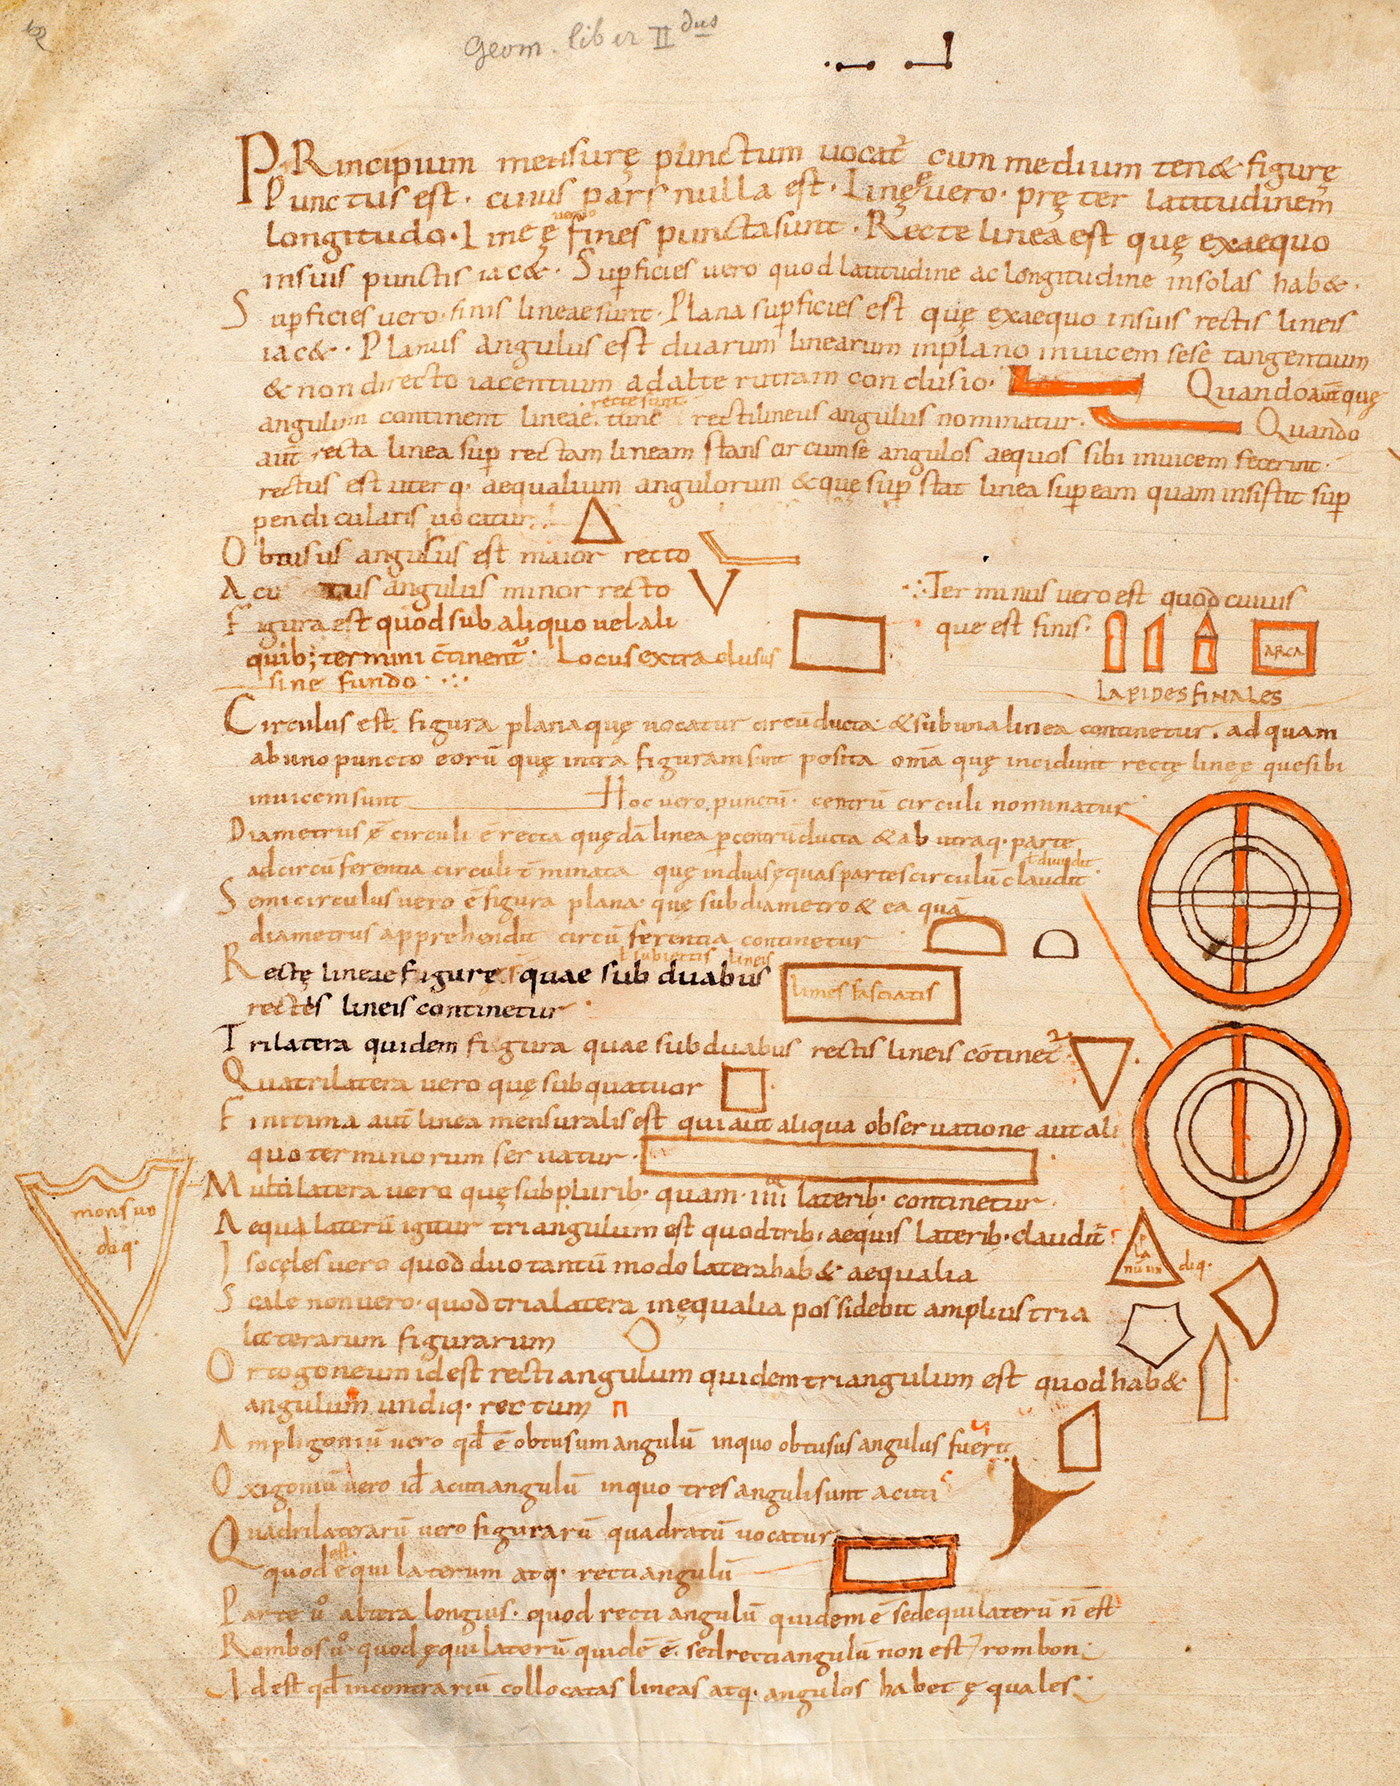 Geom. liber II dus
PRincipium mensurę punctum uocat̄ cum medium ten& figurę
Punctus est. cuius pars nulla est. Linęę uero. pręter latitudinem
longitudo. Lineę uero fines puncta sunt. Recte linea est quę exaequo
insuis punctis iac&. Supficies uero quod latitudine ac longitudine insolas hab&.
Supficies uero. finis lineae sunt. Plana supficies est quę exaequo insuis rectis lineis
iac&. Planus angulus est duarum linearum inplano inuicem sese tangentium
& non directo iacentium ad alterutram conclusio. Quando aut̄ quę
angulum continent lineae. recte sunt. tunc rectilineus angulus nominatur. Quando
aut̄ recta linea sup rectam lineam stans circumse angulos aequos sibi inuicem fecerint.
rectus est uterq. aequalium angulorum & quę sup stat linea sup eam quam insistit sup
pendicularis uocatur.
Obtusus angulus est maior recto
Acu tus angulus minor recto
∴ Terminus uero est quod cuius
que est finis.
Figura est quod sub aliquo uel ali
quib; termini c̄tinent̄. Locus extra clusus
sine fundo
ARCA
LAPIDES FINALES
Circulus est. figura plana quę uocatur circūducta. & sub una linea continetur. ad quam
ab uno puncto eorū quę intra figuram sunt posita om̄a quę incidunt rectę lineę que sibi
inuicem sunt Hoc uero. punctū. centrū circuli nominatur
Diametrus ē circuli ē recta quędā linea p centrū ducta & ab utraq. parte
ad circū ferentia circuli t̄minata quę induas ęquas partes circulū claudit
ł diuidit
Semicirculus uero ē figura plana. quę sub diametro & ea quā
diametrus apprehendit circū ferentia continetur
ł subiectis lineis
Rectę lineae figurę quae sub duabus
limes fasciatis
rectis lineis continetur
Trilatera quidem figura quae sub duabus rectis lineis cōtinet̄
Quatrilatera uero quę sub quatuor
Finitima aut̄ linea mensuralis est qui aut aliqua obseruatione aut ali
quo terminorum seruatur.
Multilatera uero quę sub plurib. quam. iiii laterib. continetur
mons un
diq.
Aequa laterū igitur triangulum est quod trib. aequis laterib. claudit̄
pla
num un diq.
Isoceles uero quod duo tantū modo latera hab& aequalia
Scale non uero. quod tria latera inęqualia possidebit amplius tria
latterarum figurarum
Ortogoneum id est rectiangulum quidem triangulum est quod hab&
angulum undiq. rectum
Ampligoniū uero qđ ē obtusum angulū inquo obtusus angulus fuerit
Oxigoniū uero id acutiangulū inquo tres anguli sunt acuti
Quadrilaterarū uero figurarū quadratū uocatur
quod est equilaterum atq. rectiangulū
Parte ů altera longius. quod recti angulū quidem ē sed equilaterū n̄ est
Rombos ů. quod ęquilaterū quidē ē. sed rectiangulū non est rombon
Id est qđ incontrariū collocatas lineas atq. angulos habet ęquales.